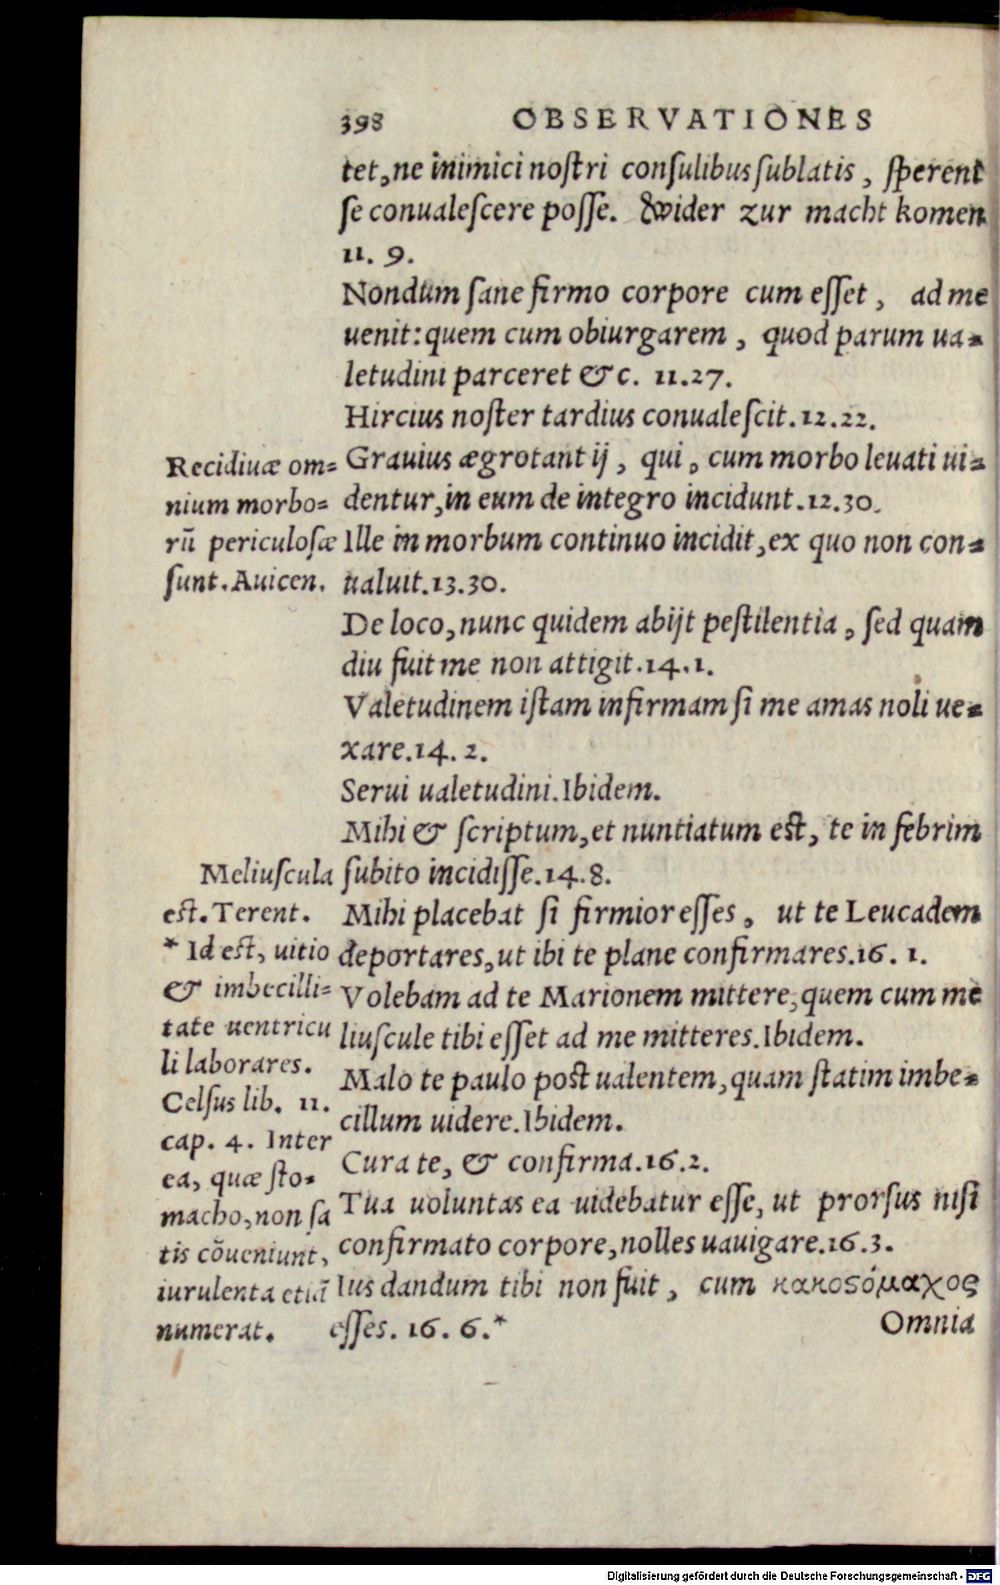 398 OBSERVATIONES
tet, ne inimici nostri consulibus sublatis, sperent
se conualescere posse. Wider zur macht komen
11. 9.
Nondum sane firmo corpore cum esset, ad me
uenit: quem cum obiurgarem, quod parum ua-
letudini parceret &c. 11.27.
Hircius noster tardius conualescit. 12.22.
Grauius ægrotant ij, qui, cum morbo leuati ui-
dentur, in eum de integro incidunt. 12.30.
Ille in morbum continuo incidit, ex quo non con-
ualuit. 13.30.
De loco, nunc quidem abijt pestilentia, sed quam
diu fuit me non attigit. 14.1.
Valetudinem istam infirmam si me amas noli ue-
xare. 14. 2.
Serui ualetudini. Ibidem.
Mihi & scriptum, et nuntiatum est, te in febrim
subito incidisse. 14.8.
Mihi placebat si firmior esses, ut te Leucadem
deportares, ut ibi te plane confirmares. 16. 1.
Volebam ad te Marionem mittere, quem cum me
liuscule tibi esset ad me mitteres. Ibidem.
Malo te paulo post ualentem, quam statim imbe-
cillum uidere. Ibidem.
Cura te, & confirma. 16.2.
Tua uoluntas ea uidebatur esse, ut prorsus nisi
confirmato corpore, nolles uauigare. 16.3.
Ius dandum tibi non fuit, cum κακοϛόμαχος
esses. 16. 6.*
Omnia
Recidiuæ om-
nium morbo-
rū periculosæ
sunt. Auicen.
Meliuscula
est. Terent.
* Id est, uitio
& imbecilli-
tate uentricu
li laborares.
Celsus lib. 11.
cap. 4. Inter
ea, quæ sto-
macho, non sa
tis cōueniunt,
iurulenta etiā
numerat.
Digitalisierung gefördert durch die Deutsche Forschungsgemeinschaft - DFG